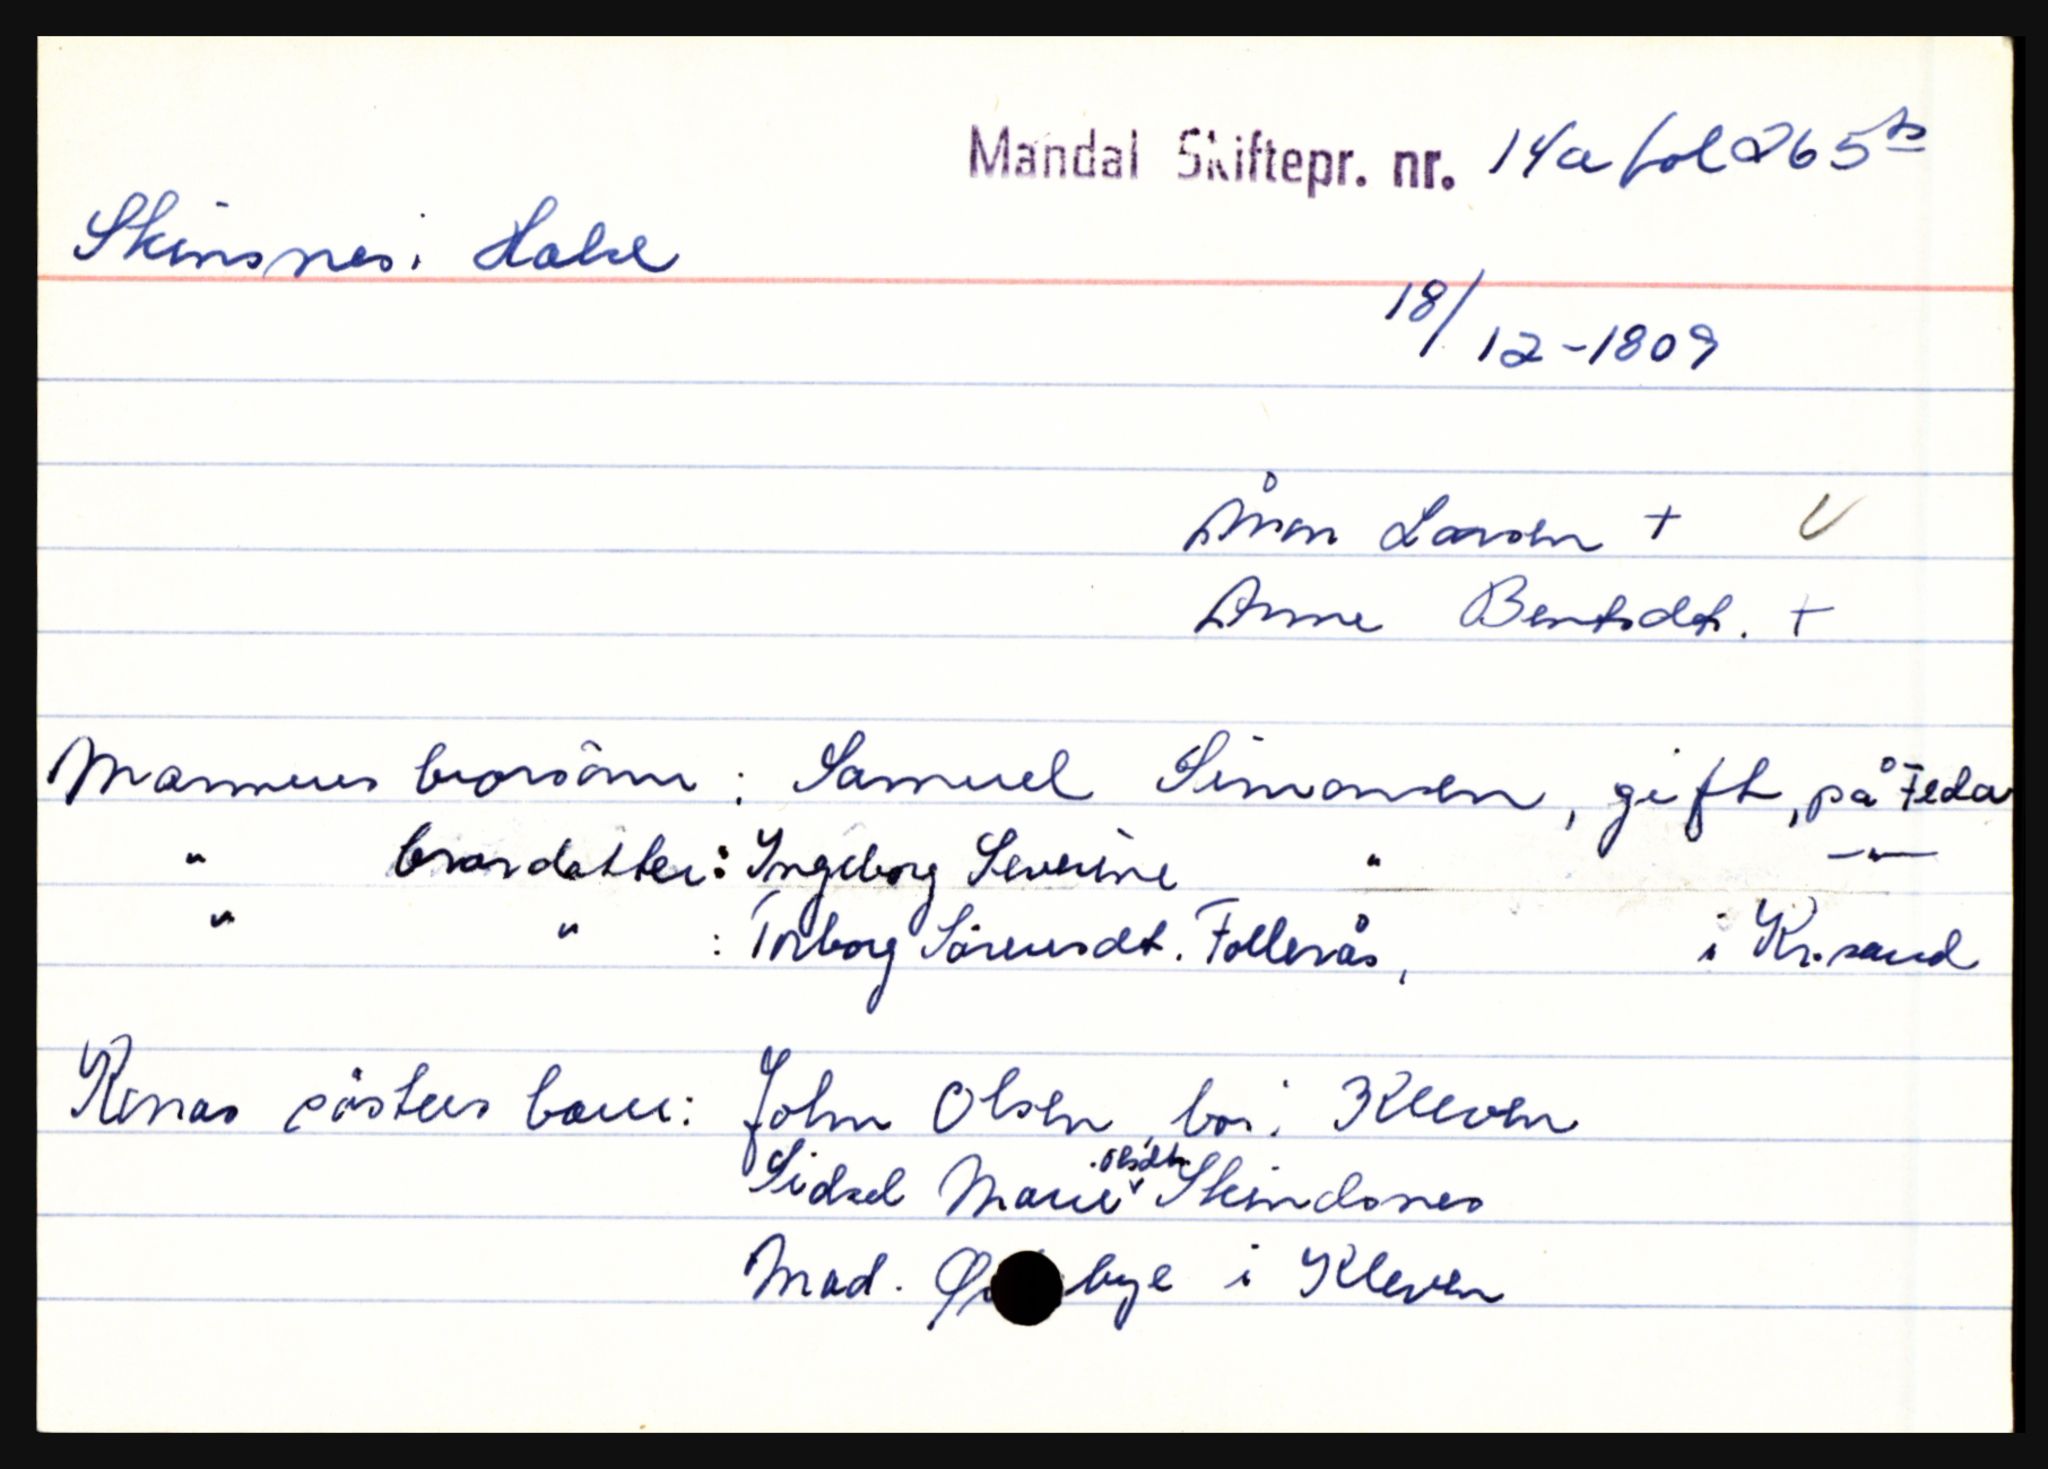 Mandal Skiftepr. nr. 14a fol 265 b
Skinsnes i Halse
18/12-1809
Ånon Larsen +
Anne Bentsdt. +
Mannens brorsönn : Samuel Simonsen, gift, på Feda
" brordatter : Ingeborg Severine " —"—
" " : Torborg Sörensdt. Follerås, i Kr.sand
Konas sösters barn : John Olsen, bor i Kleven
Sidsel Marie Olsdt. Skindsnes
Mad. bye i Kleven